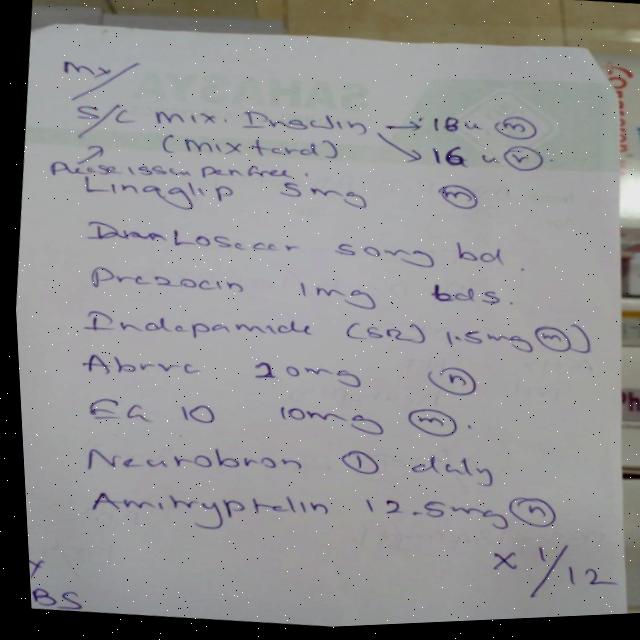 my/
S/C mix. Insulin → 18u (m)
(mixtard) → 16 u (v)
Please issue penfree.
Linaglip 5mg (m)
Losacar 50mg bd.
Prezocin 1mg bds.
Indapamide (SR) 1.5mg (m))
20mg (n)
10 10mg (m).
Neurobron (1) daly
Amitryptelin 12.5mg (n)
x 1/12
BS
SAHASYA